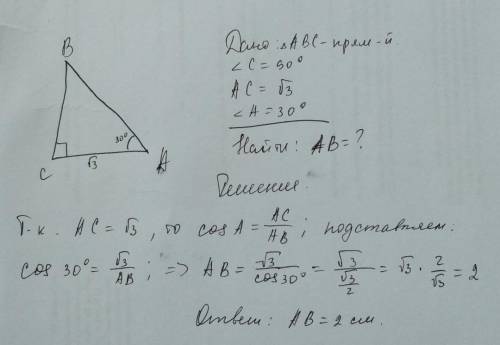 B
30°
C
√3
A
Дано: △ABC - прям-й.
∠C = 90°
AC = √3
∠A = 30°
Найти: AB = ?
Решение.
Т-к. AC = √3, то cos A = AC/AB; подставляем.
cos 30° = √3/AB; => AB = √3/cos 30° = √3/(√3/2) = √3 · 2/√3 = 2
Ответ: AB = 2 см.